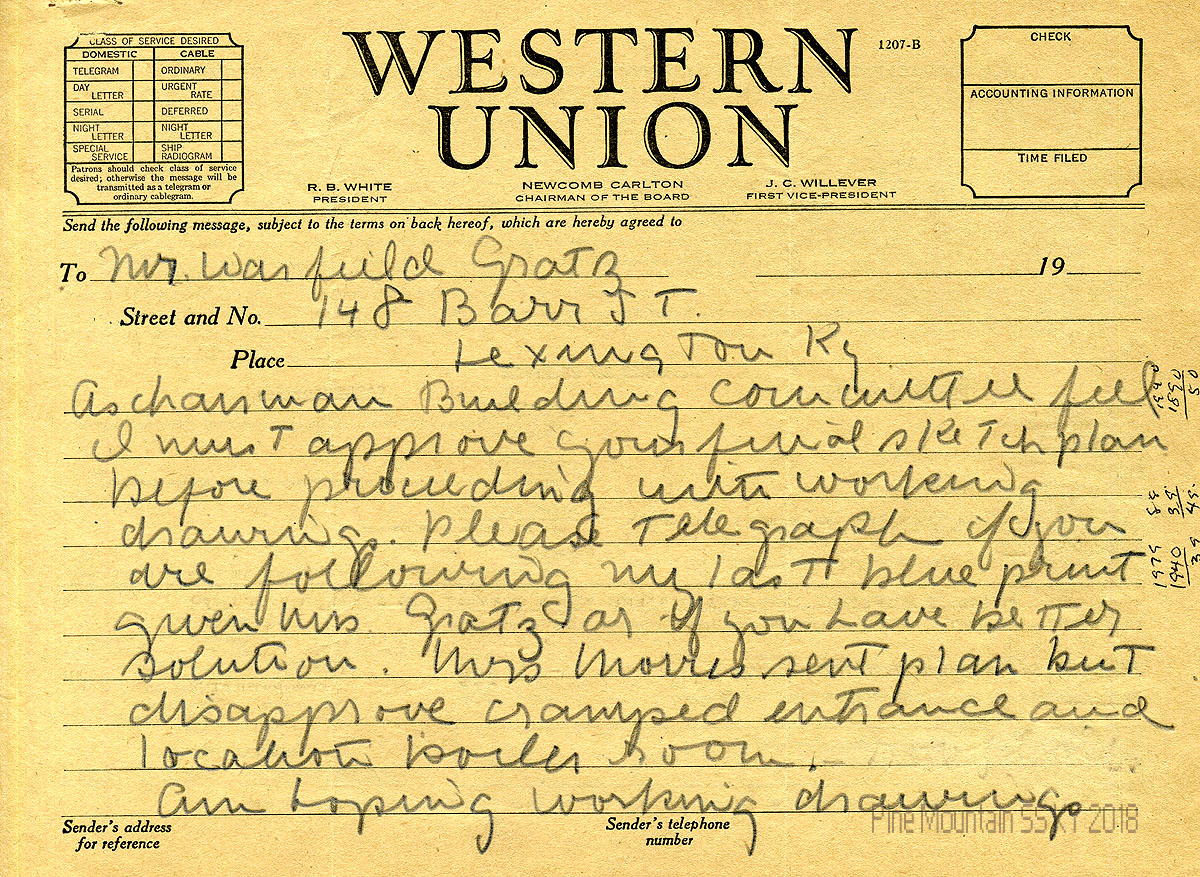 CLASS OF SERVICE DESIRED
DOMESTIC CABLE
TELEGRAM ORDINARY
DAY LETTER URGENT RATE
SERIAL DEFERRED
NIGHT LETTER NIGHT LETTER
SPECIAL SERVICE SHIP RADIOGRAM
Patrons should check class of service
desired; otherwise the message will be
transmitted as a telegram or
ordinary cablegram.
WESTERN
UNION
1207-B
R. B. WHITE
PRESIDENT
NEWCOMB CARLTON
CHAIRMAN OF THE BOARD
J. C. WILLEVER
FIRST VICE-PRESIDENT
CHECK
ACCOUNTING INFORMATION
TIME FILED
Send the following message, subject to the terms on back hereof, which are hereby agreed to
To Mr. Warfield Gratz 19
Street and No. 148 Barr ST.
Place Lexington Ky
As chairman Building Committee feel
I must approve your final sketch plan
before proceeding with working
drawings. Please Telegraph if you
are following my last blue print
given Mrs. Gratz or if you have better
solution. Mrs Morris sent plan but
disapprove cramped entrance and
location boiler room.
Am hoping working drawings
Sender's address
for reference
Sender's telephone
number
1940
1890
50
1975
1940
35
Pine Mountain SS KY 2018